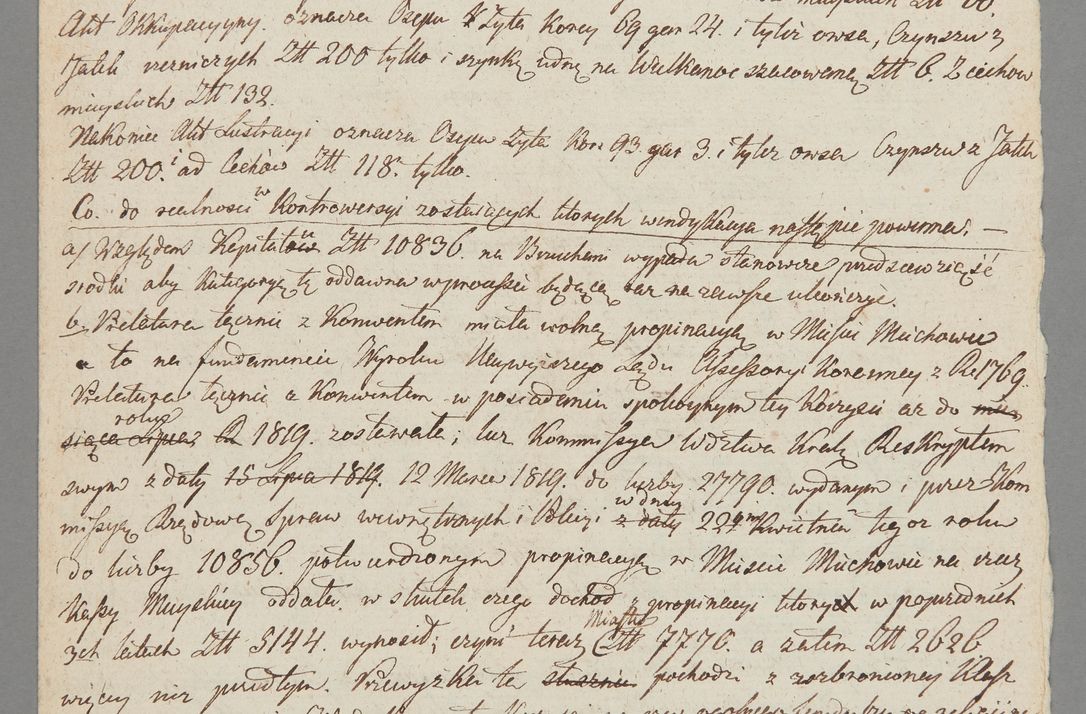 Akt Okkupacyyny. oznacza Osepu Zyta Korcy 69 gar 24. i tyleż owsa, Czynszu z
Jatek rzeźniczych Ztt 200 tylko i szynkę iedną na Wielkanoc szacowaną Ztt 6. Z cechow
mieyskich Ztt 132.
Nakoniec Akt Lustracyi oznacza Osepu Zyta Kor. 93. gar 3. i tyleż owsa Czynszu z Jatek
Ztt 200. i od Cechów Ztt 118. tylko.
Co. do realności w Kontrowersyi zostaiących których windykacya nastąpić powinna. —
a/ Względem Kapitału Ztt 10836. na Biuchami wypada stanowcze przedsięwziąść
srodki aby Kategoryą tę oddawna w processie będącą raz na zawsze ukończyć.
b, Prelatura łącznie z Konwentem miała wolną propinacyą w Mieście Miechowie
a to na fundamencie Wyroku Naywyższego Sądu Assessoryi Koronney z Ru 1769.
Prelatura łącznie z Konwentem w posiadaniu spokoynym tey Korzyści aż do mie
roku
siąca Lipca R 1819. zostawała; lecz Kommissya Wdztwa Krak. Reskryptem
swym z daty 15 Lipca 1819. 12 Marca 1819. do liczby 27790. wydanym i przez Kom
w dniu
missyą Rządową Spraw wewnętrznych i Policyi z daty 22gm Kwietnia tegoż roku
do liczby 10856. potwierdzonym propinacyą w Mieście Miechowie na rzecz
Kassy Mieyskiey oddała. w skutek czego dochód z propinacyi których w poprzednich
Miasto
3ch latach Ztt 5144. wynosił; czyni teraz Ztt 7770. a zatem Ztt 2626
więcey niż przedtym. Przewyżka ta słusznie pochodzi z wzbronioney Klasz